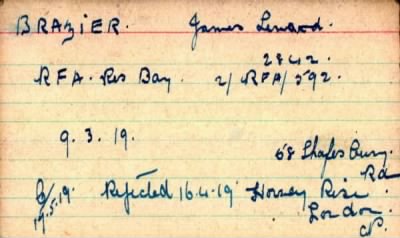 BRAZIER. James Lenard.
2842.
RFA. Res Bay. 2/RFA/592.
9.3.19.
68 Shaftsbury.
Rd
Rejected 16.4.19 Hornsey Rise
19.5.19. London